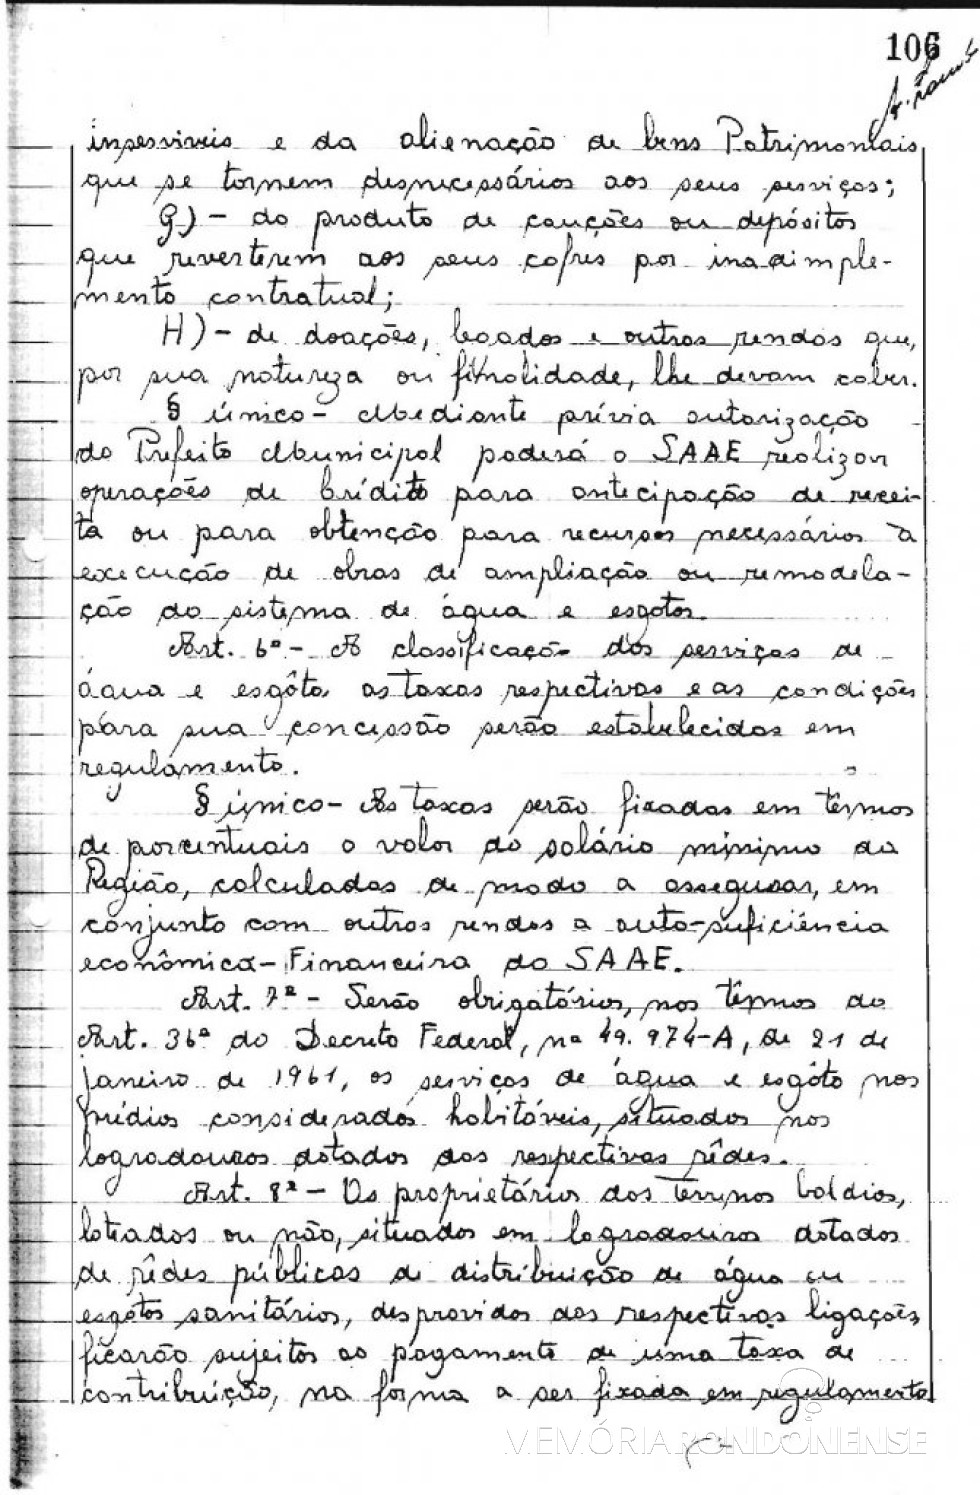 106
inservíveis e da alienação de bens Patrimoniais
que se tornem desnecessários aos seus serviços;
G) - do produto de cauções ou depósitos
que reverterem aos seus cofres por inadimple-
mento contratual;
H) - de doações, legados e outras rendas que,
por sua natureza ou finalidade, lhe devam caber.
§ único - Mediante prévia autorização
do Prefeito Municipal poderá o SAAE realizar
operações de crédito para antecipação de recei-
ta ou para obtenção para recursos necessários à
execução de obras de ampliação ou remodela-
ção do sistema de água e esgotos.
Art. 6º - A classificação dos serviços de
água e esgôto, as taxas respectivas e as condições
para sua concessão serão estabelecidas em
regulamento.
§ único - As taxas serão fixadas em têrmos
de porcentuais o valor do salário mínimo da
Região, calculadas de modo a assegurar, em
conjunto com outras rendas a auto-suficiência
econômica-Financeira do SAAE.
Art. 7º - Serão obrigatórios, nos têrmos do
Art. 36º do Decreto Federal, nº 49.974-A, de 21 de
janeiro de 1961, os serviços de água e esgôto nos
prédios considerados habitáveis, situados nos
logradouros dotados das respectivas rêdes.
Art. 8º - Os proprietários dos terrenos baldios,
loteados ou não, situados em logradouros dotados
de rêdes públicas de distribuição de água ou
esgôtos sanitários, desprovidos das respectivas ligações,
ficarão sujeitos ao pagamento de uma taxa de
contribuição, na forma a ser fixada em regulamento
MEMÓRIA RONDONIENSE